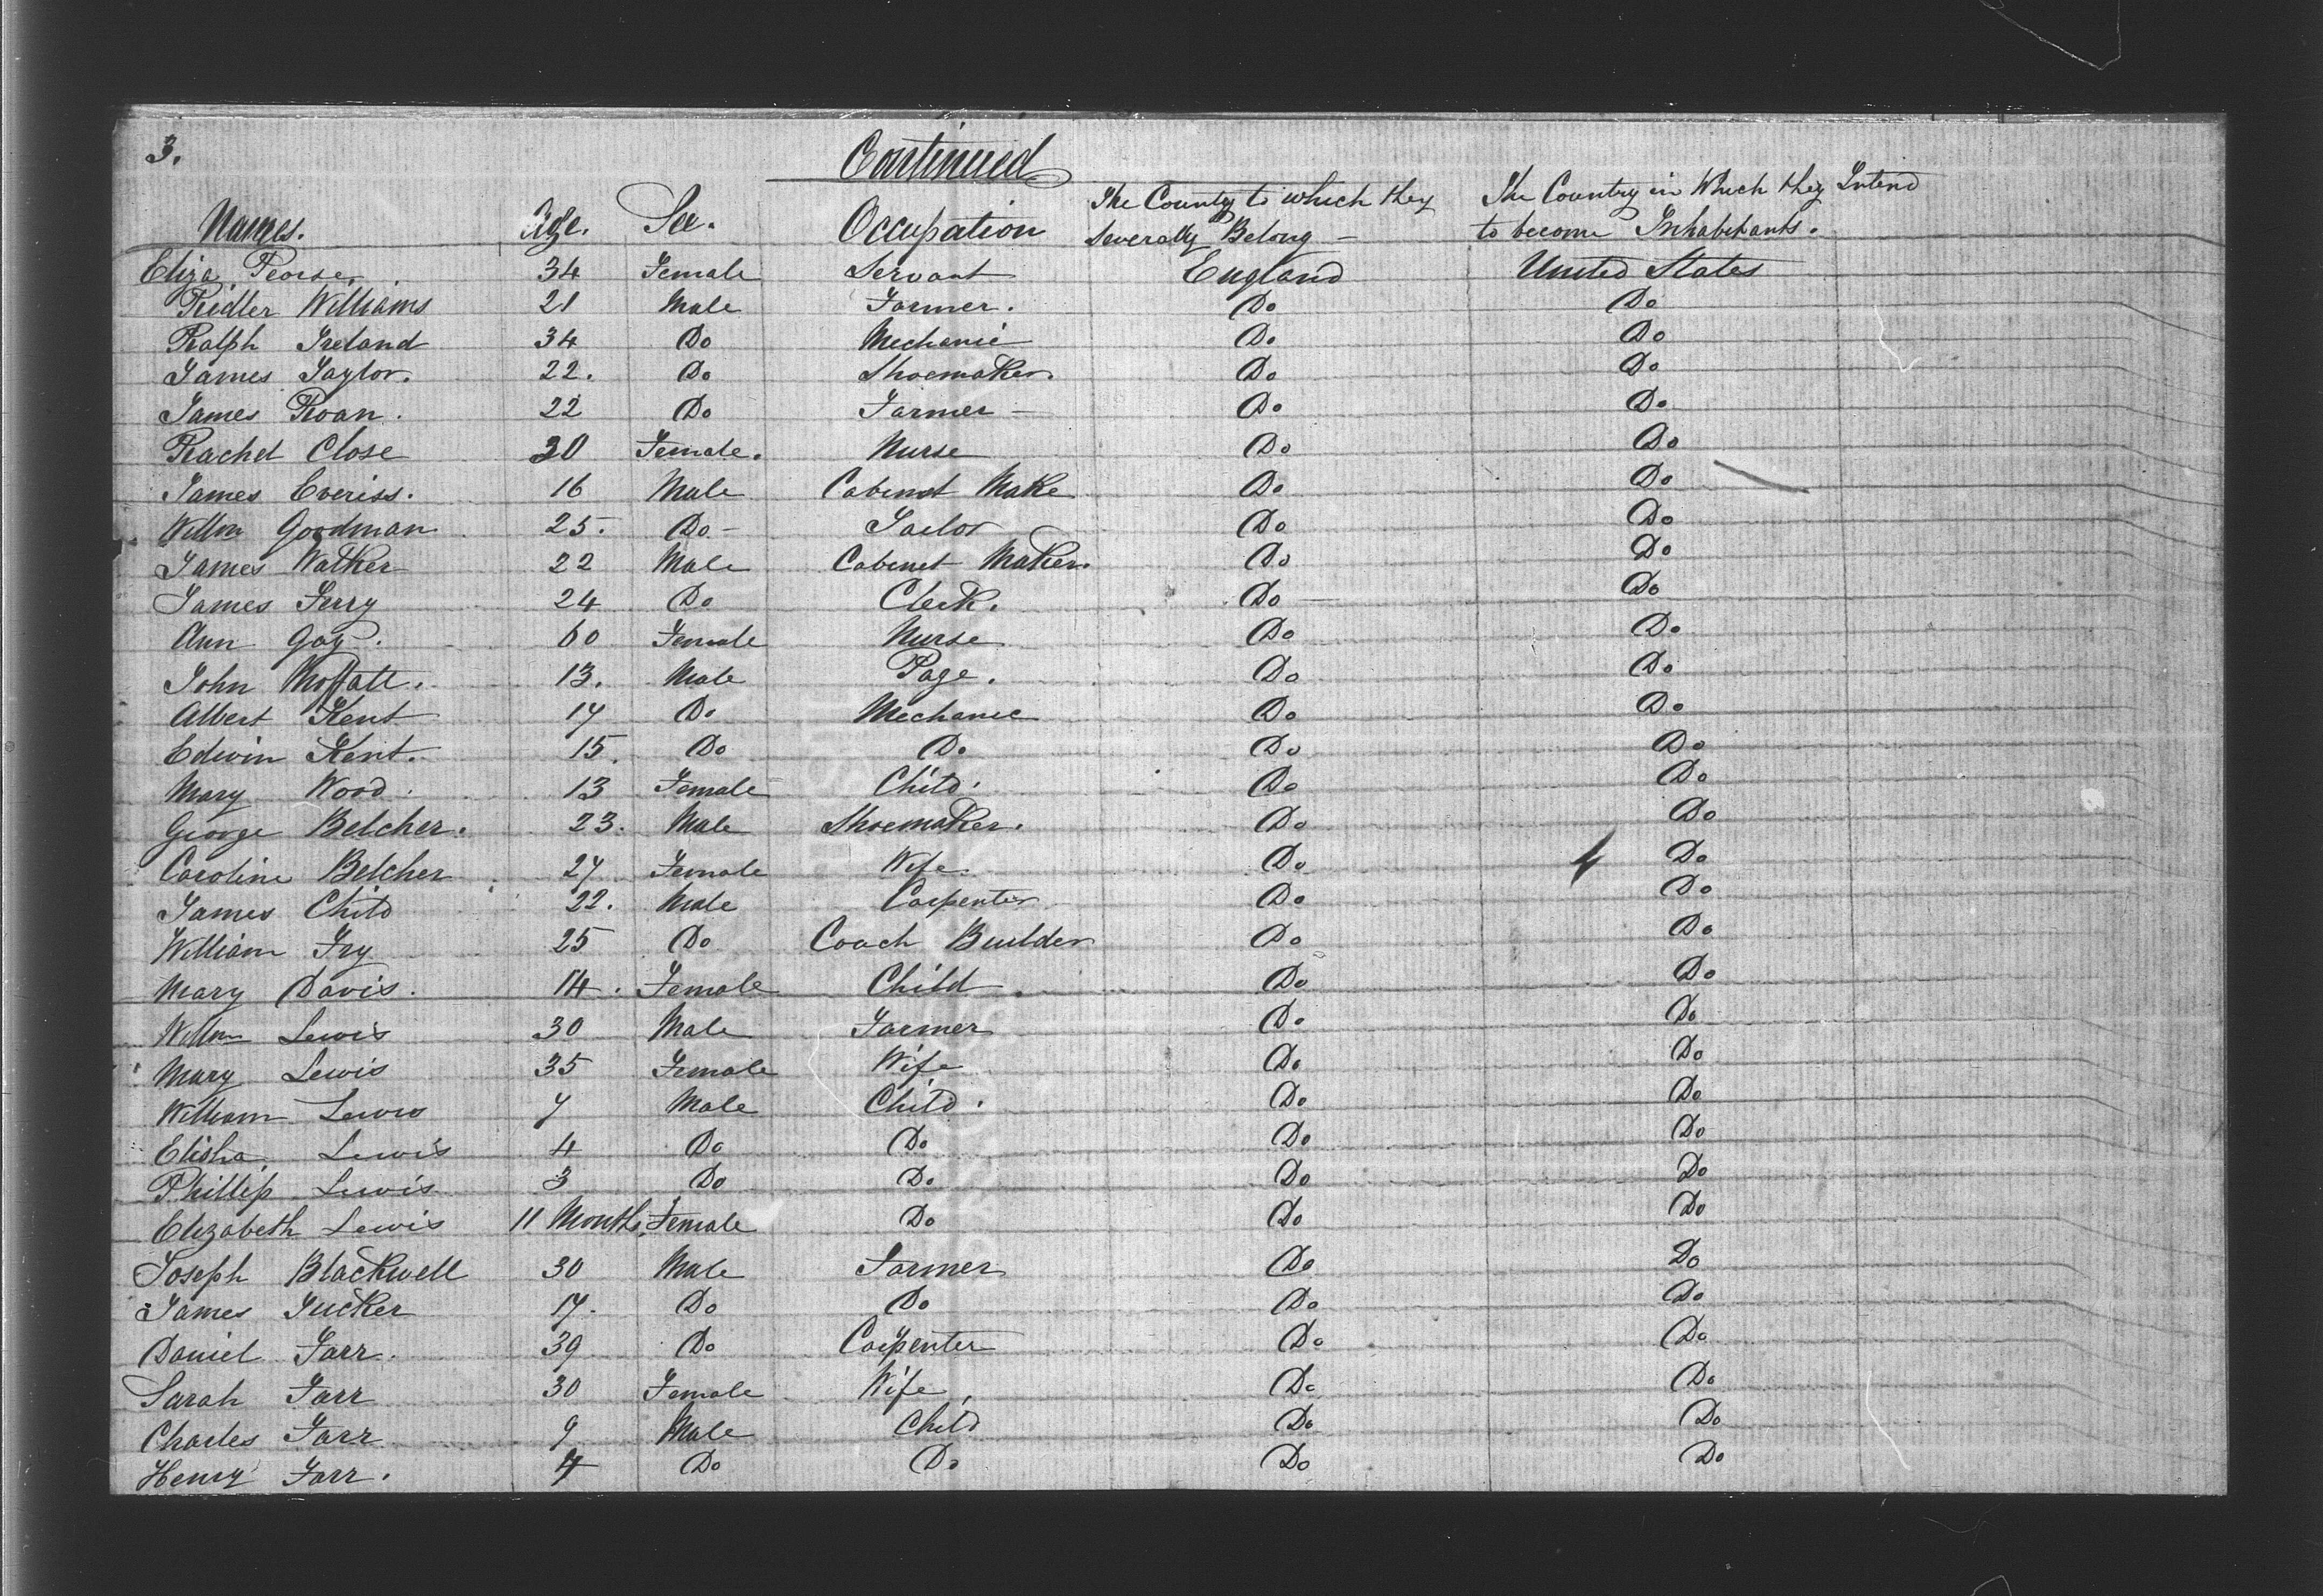 3.
Continued
Names. Age. Sex. Occupation The County to which they Severally Belong – The Country in Which they Intend to become Inhabitants.
Eliza Pearse 34 Female Servant England United States
Ridler Williams 21 Male Farmer. Do Do
Ralph Ireland 34 Do Mechanic Do Do
James Taylor. 22. Do Shoemaker. Do Do
James Roan. 22 Do Farmer – Do Do
Rachel Close 30 Female. Nurse Do Do
James Everiss. 16 Male Cabinet Make Do Do
Willm Goodman 25. Do – Tailor Do Do
James Walker 22 Male Cabinet Maker. Do Do
James Terry 24 Do Clerk. Do Do
Ann Gay. 60 Female Nurse Do Do
John Moffatt. 13. Male Page. Do Do
Albert Kent 17 Do Mechanic Do Do
Edwin Kent. 15. Do Do Do Do
Mary Wood. 13 Female Child. Do Do
George Belcher. 23. Male Shoemaker. Do Do
Caroline Belcher 27 Female Wife. Do Do
James Child 22. Male Carpenter Do Do
William Fry 25 Do Coach Builder Do Do
Mary Davis. 14. Female Child. Do Do
Willm Lewis 30 Male Farmer Do Do
Mary Lewis 35 Female Wife Do Do
William Lewis 7 Male Child. Do Do
Elisha Lewis 4 Do Do Do Do
Phillip Lewis 3 Do Do Do Do
Elizabeth Lewis 11 Months Female Do Do Do
Joseph Blackwell 30 Male Farmer Do Do
James Tucker 17. Do Do Do Do
Daniel Farr. 39 Do Carpenter Do Do
Sarah Farr 30 Female Wife Do Do
Charles Farr 9 Male Child Do Do
Henry Farr. 4 Do Do Do Do